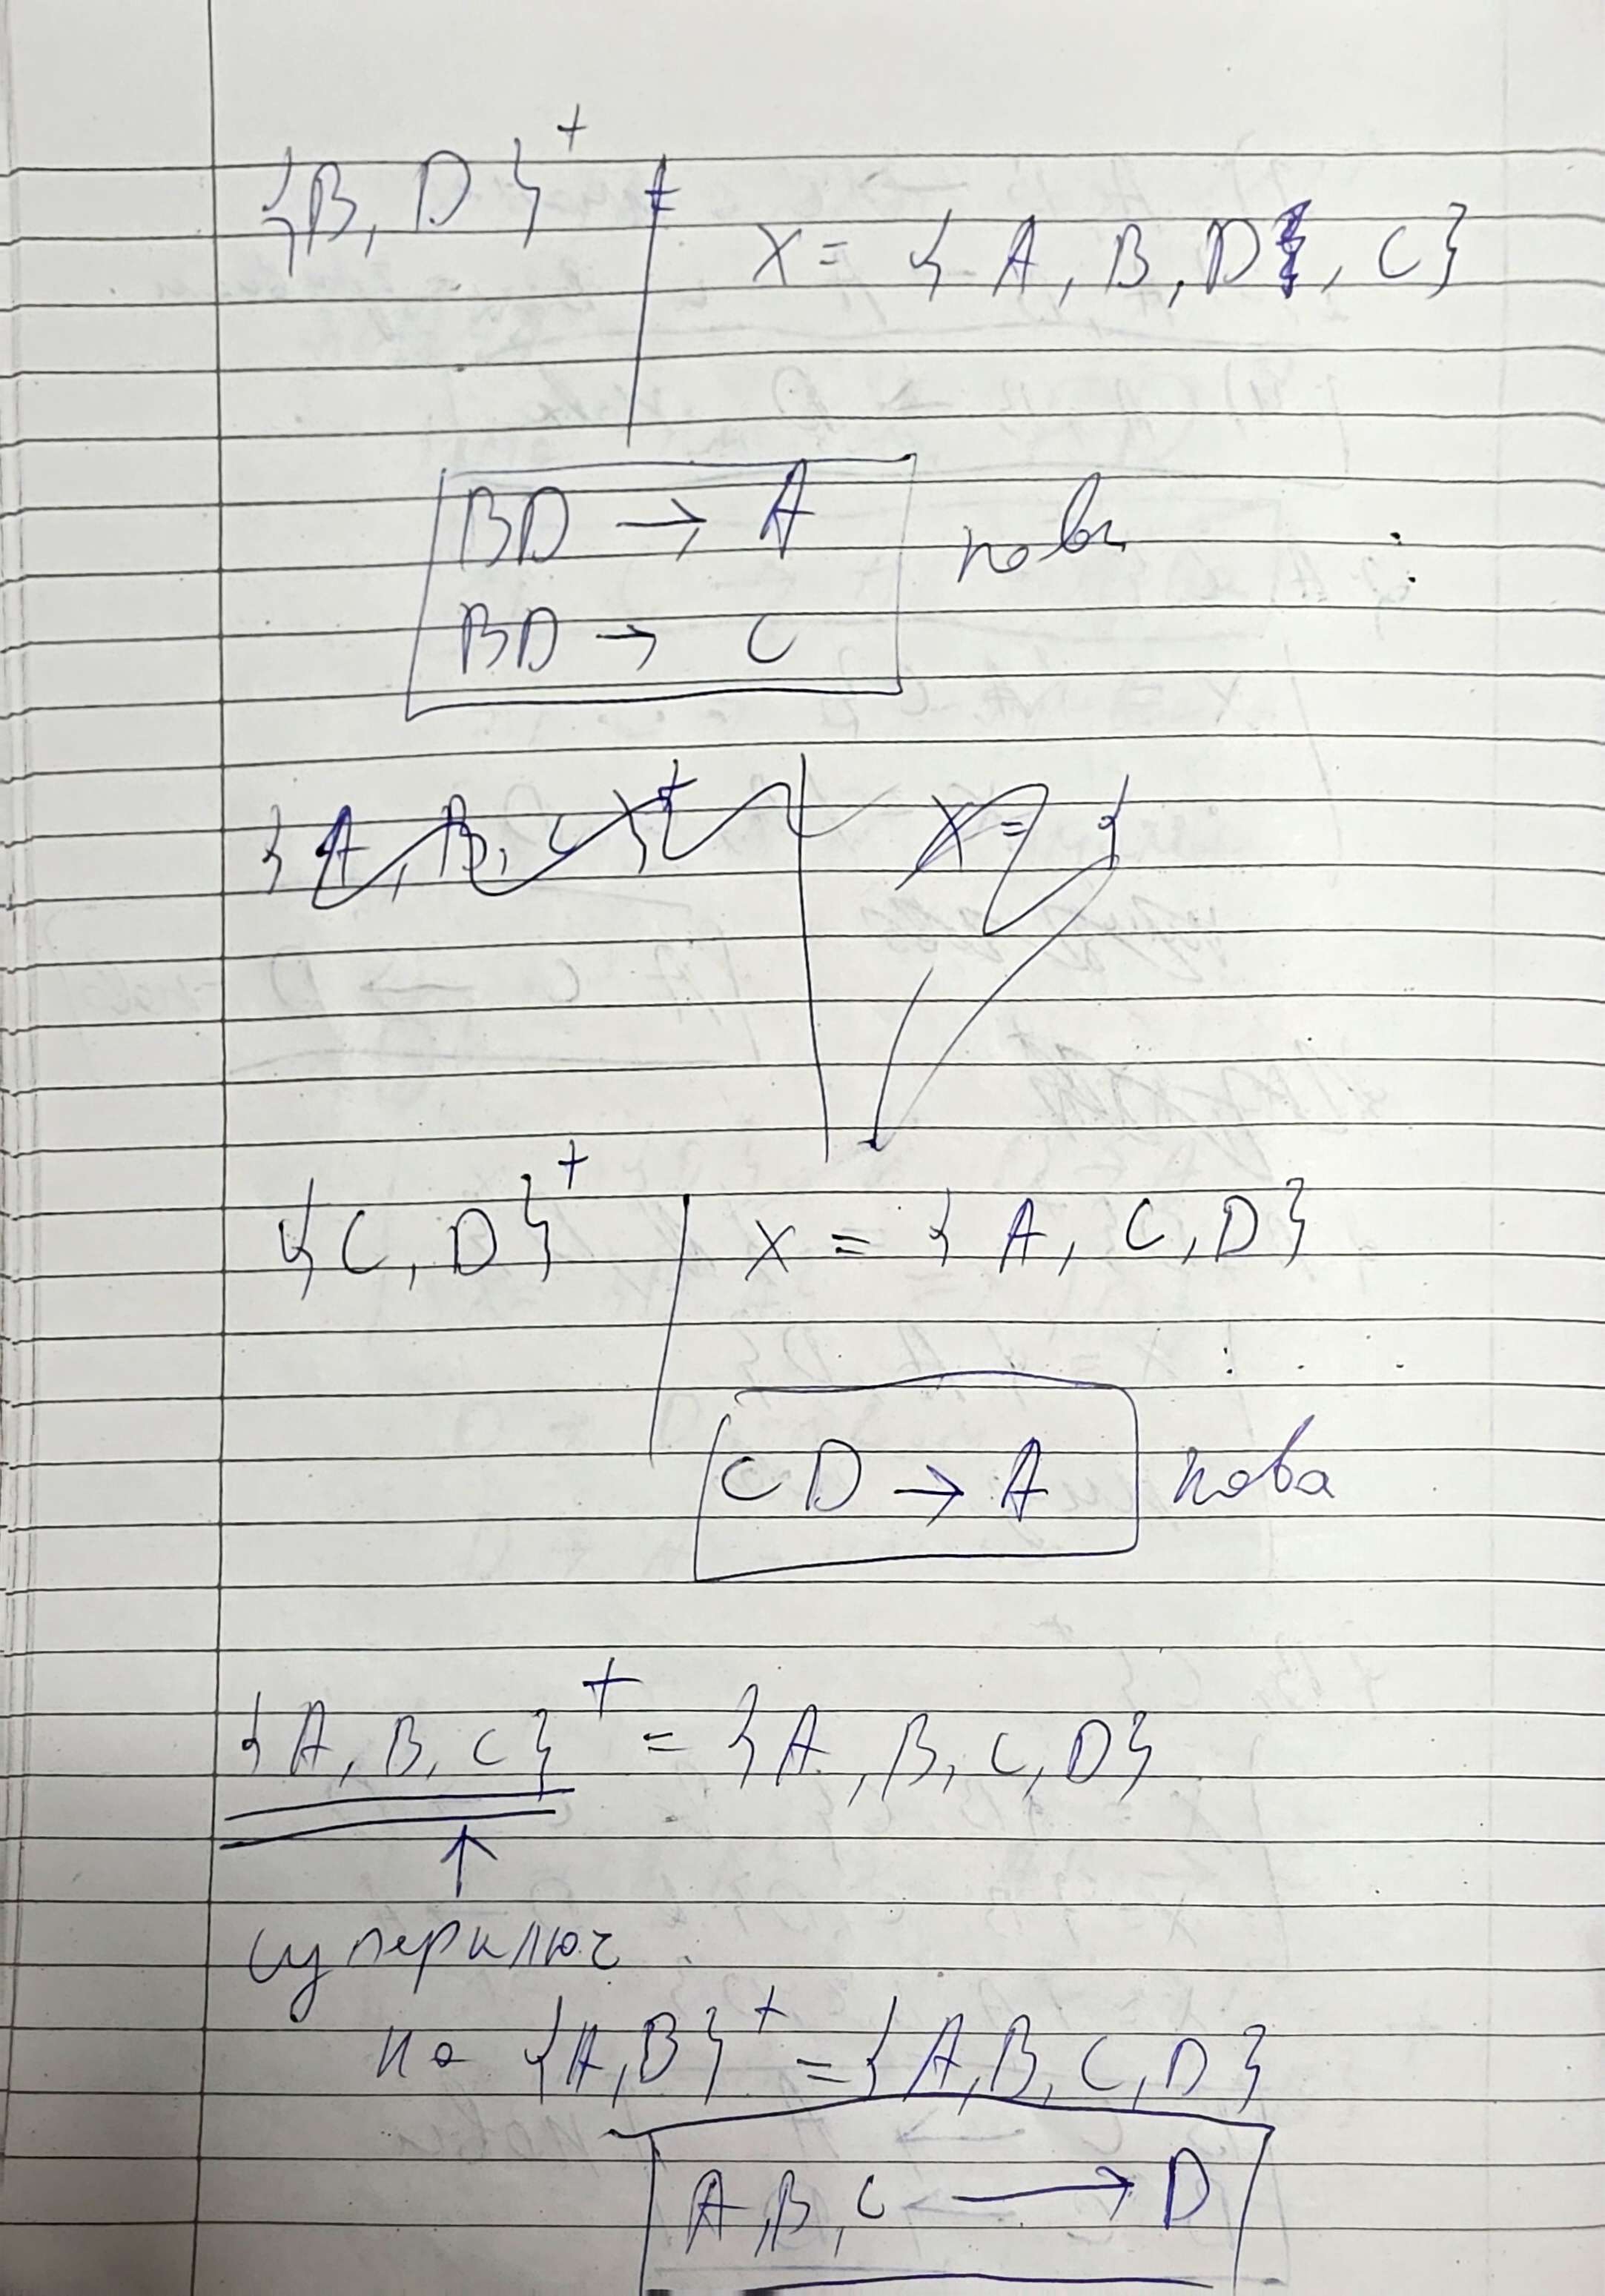 {B, D}⁺ =
X = {A, B, D, C}
BD → A
BD → C
нови
{A, B, C}⁺
X = {
{C, D}⁺
X = {A, C, D}
CD → A нова
{A, B, C}⁺ = {A, B, C, D}
↑
суперключ
но {A, B}⁺ = {A, B, C, D}
A, B, C → D